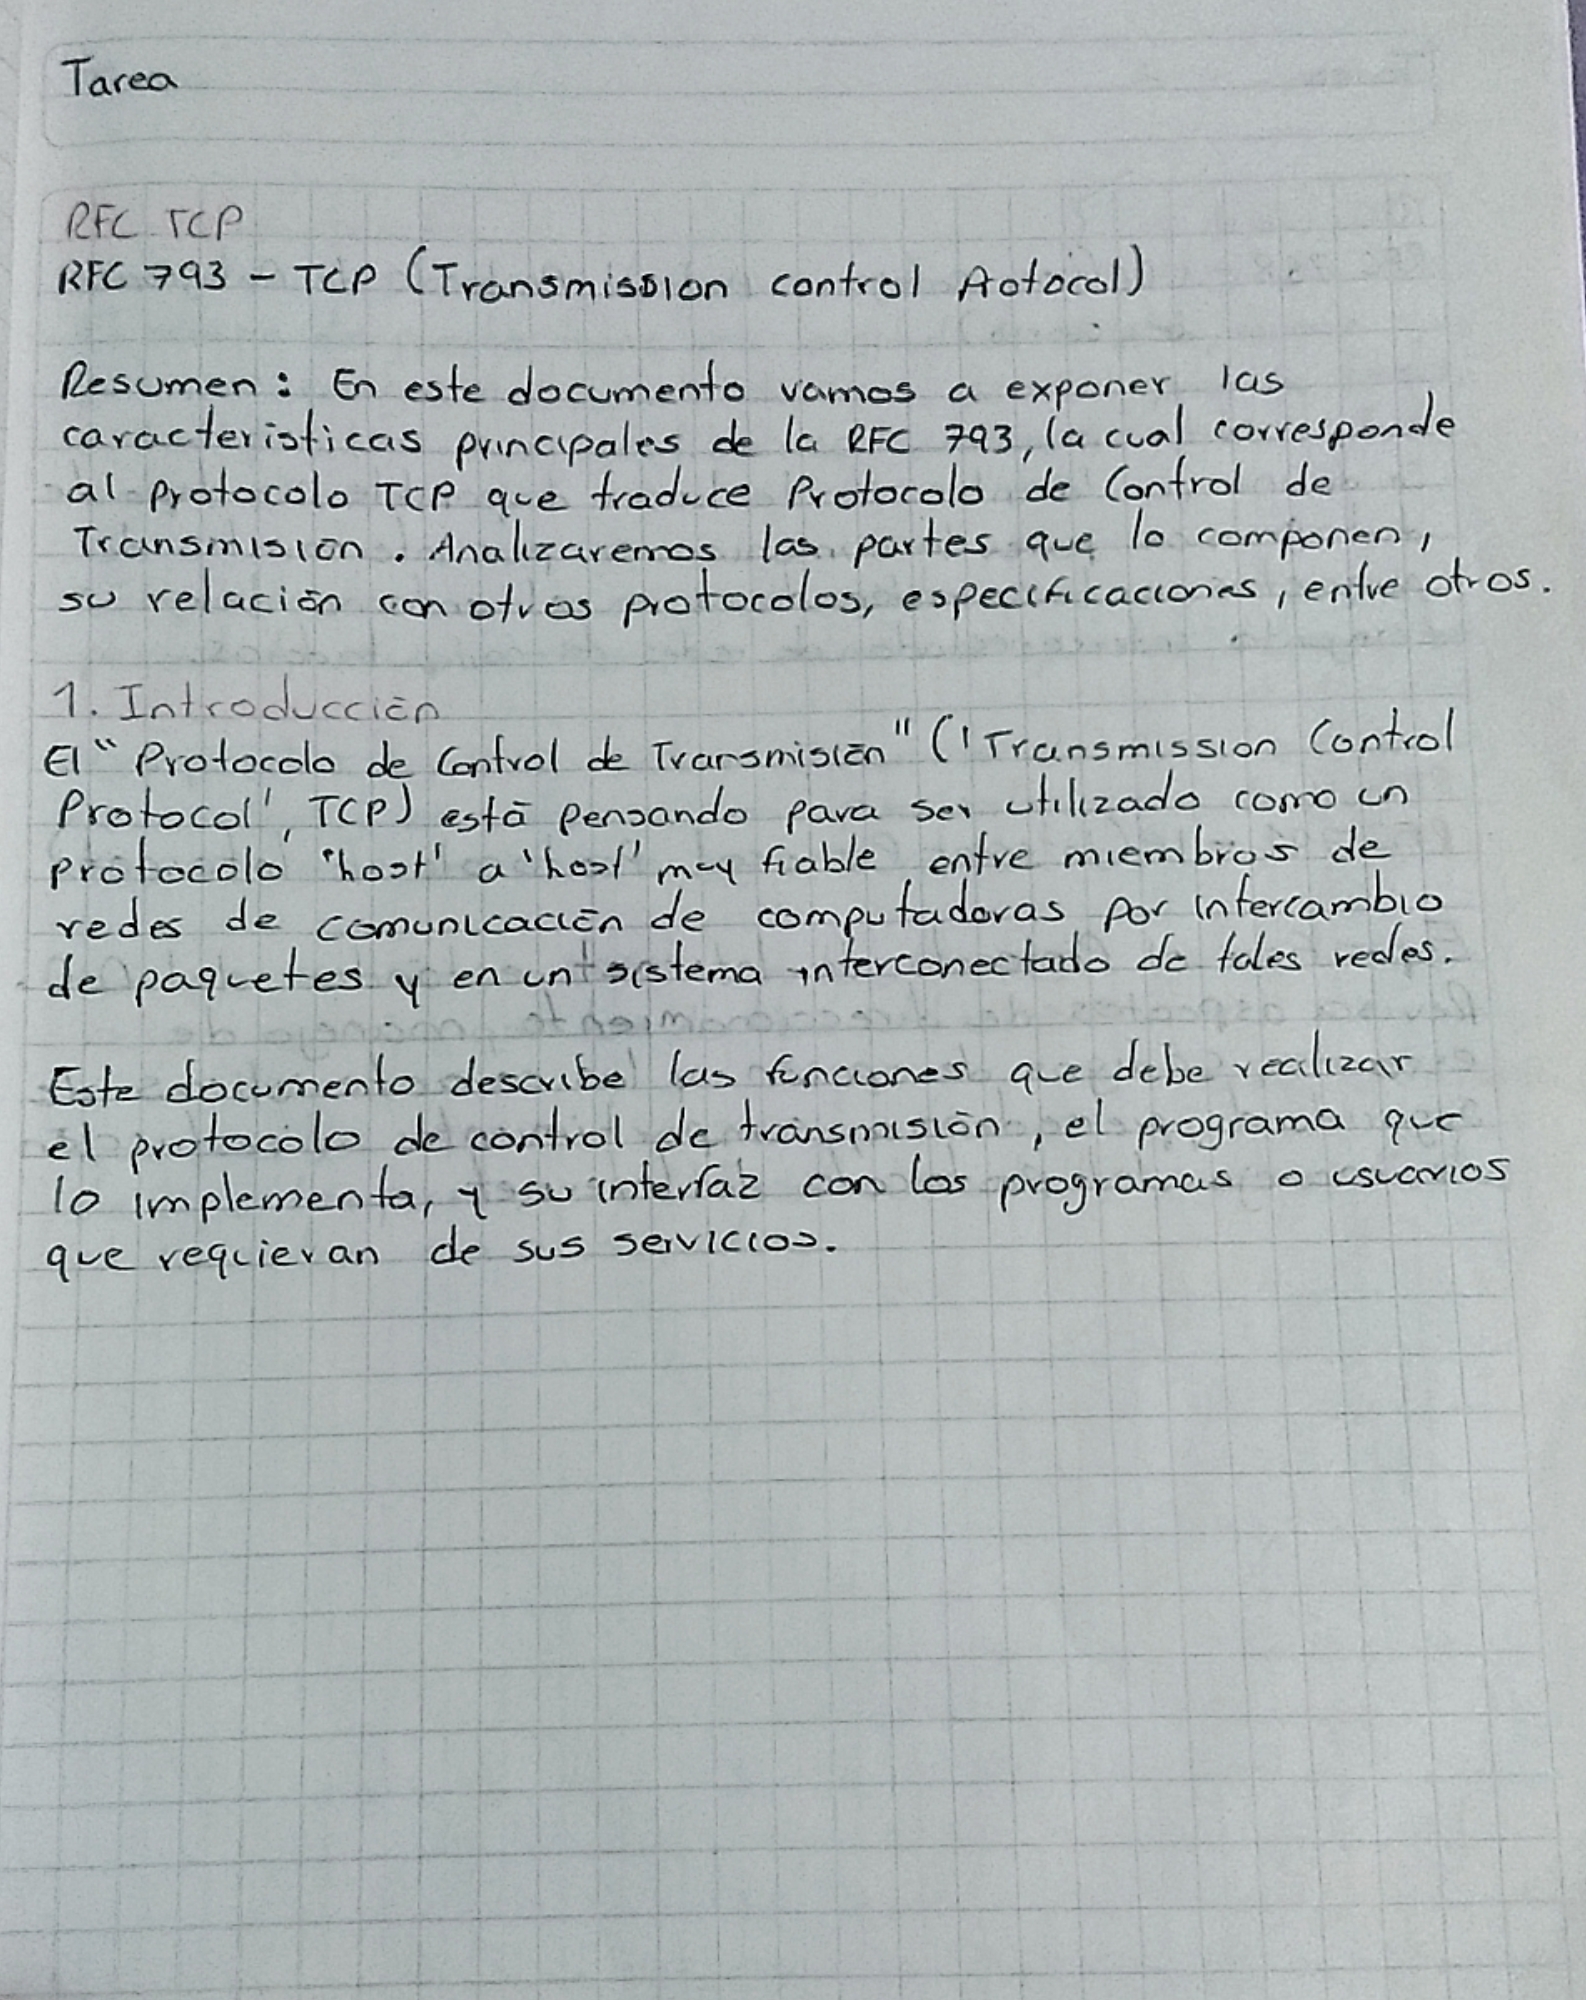 Tarea
RFC TCP
RFC 793 - TCP (Transmission control Protocol)
Resumen: En este documento vamos a exponer las
caracteristicas principales de la RFC 793, la cual corresponde
al Protocolo TCP que traduce Protocolo de Control de
Transmisión. Analizaremos las partes que lo componen,
su relación con otros protocolos, especificaciones, entre otros.
1. Introducción
El "Protocolo de Control de Transmisión" ('Transmission Control
Protocol', TCP) está pensando para ser utilizado como un
protocolo 'host' a 'host' muy fiable entre miembros de
redes de comunicación de computadoras por intercambio
de paquetes y en un sistema interconectado de tales redes.
Este documento describe las funciones que debe realizar
el protocolo de control de transmisión, el programa que
lo implementa, y su interfaz con los programas o usuarios
que requieran de sus servicios.